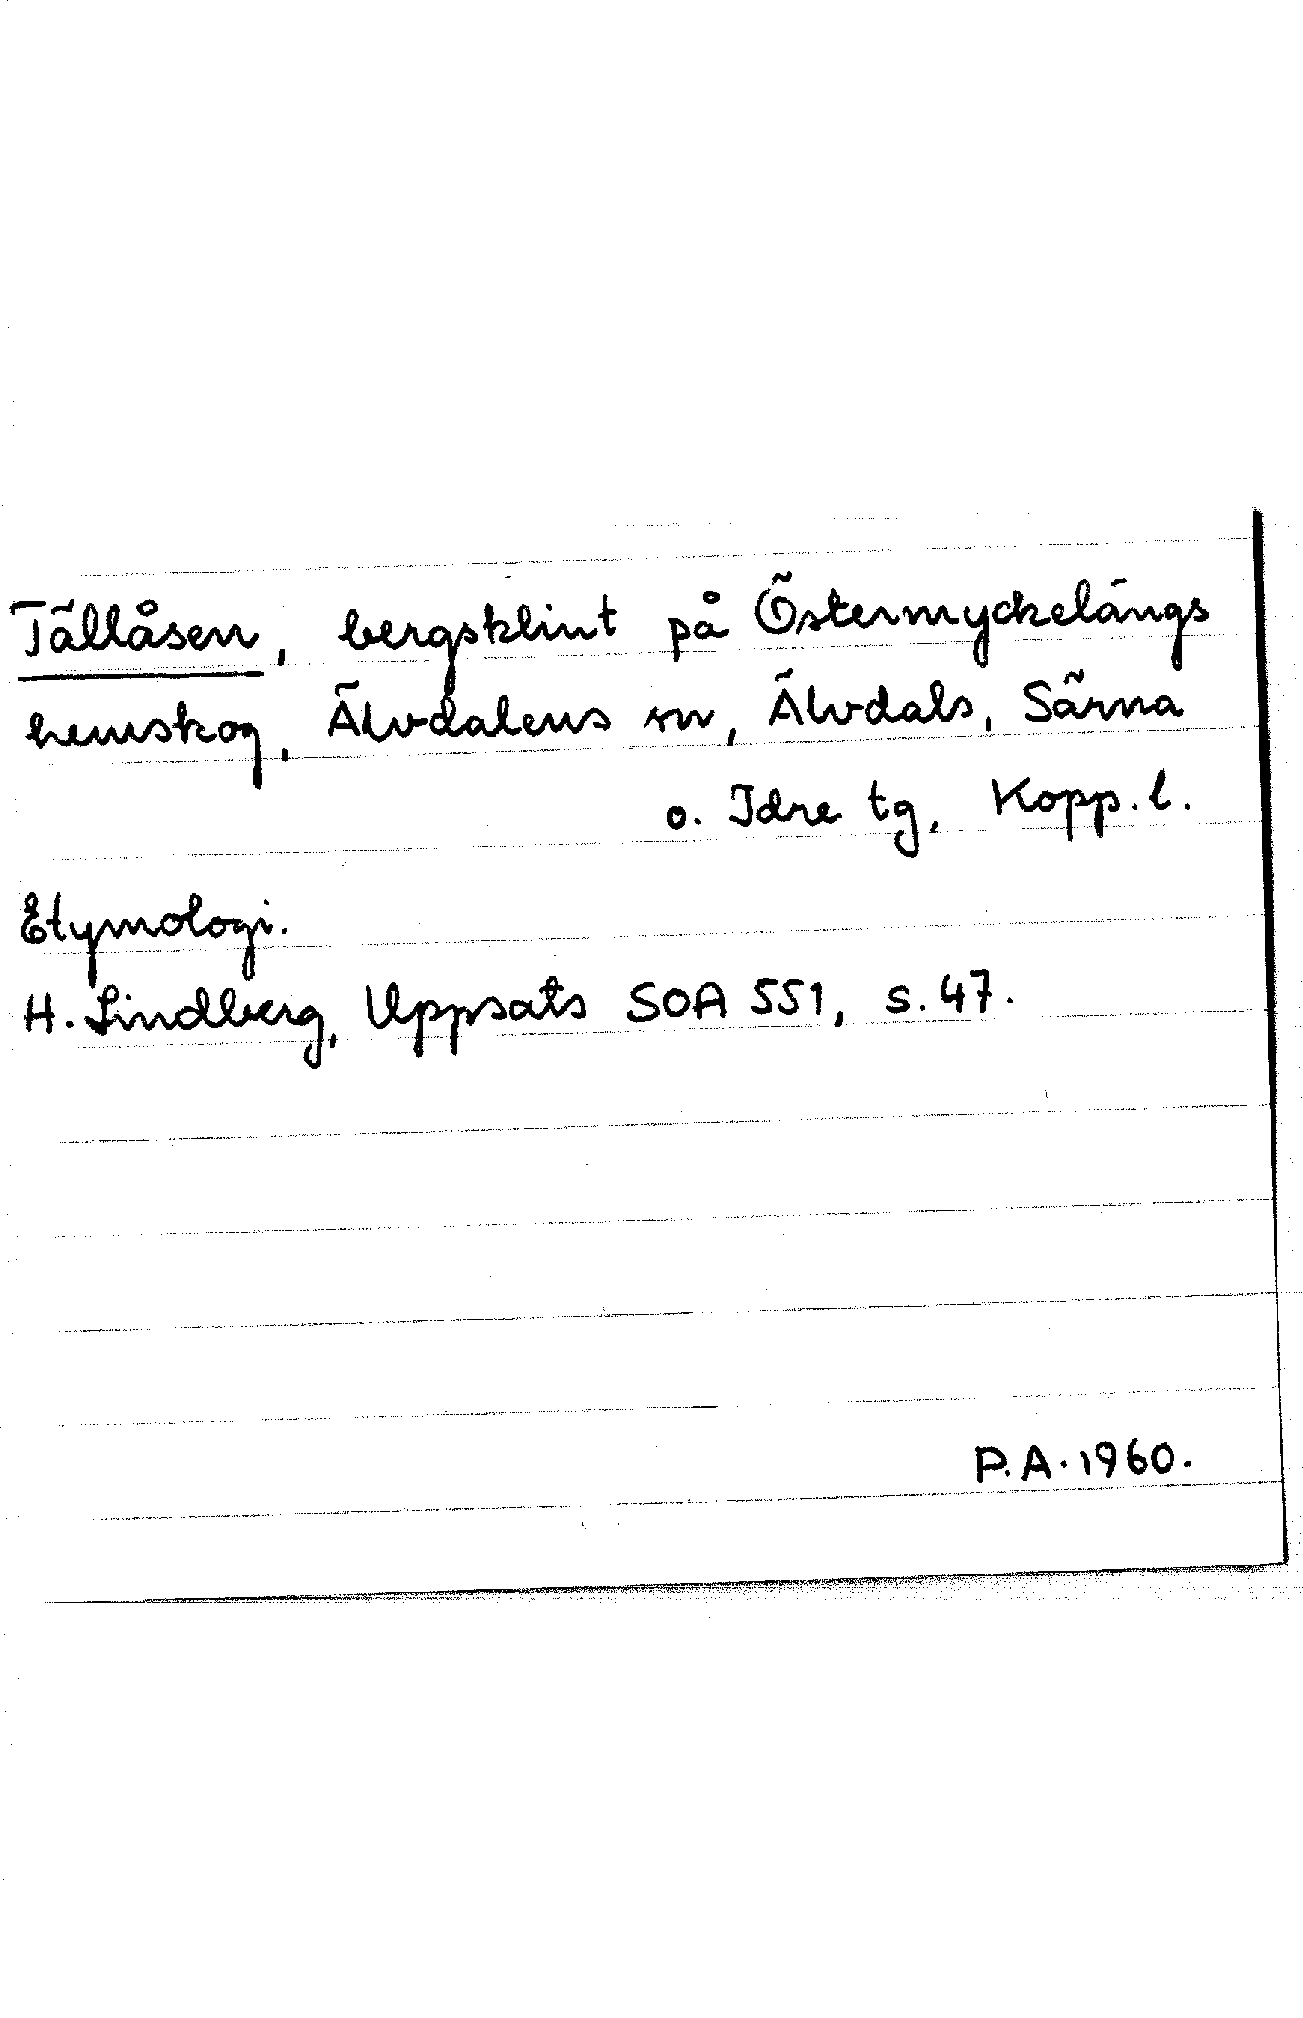 Tällåsen, bergsklint på Östermyckelängs
hemskog, Älvdalens sn, Älvdals, Särna
o. Idre tg, Kopp. l.
Etymologi.
H. Lindberg, Uppsats SOA 551, s. 47.
P.A. 1960.